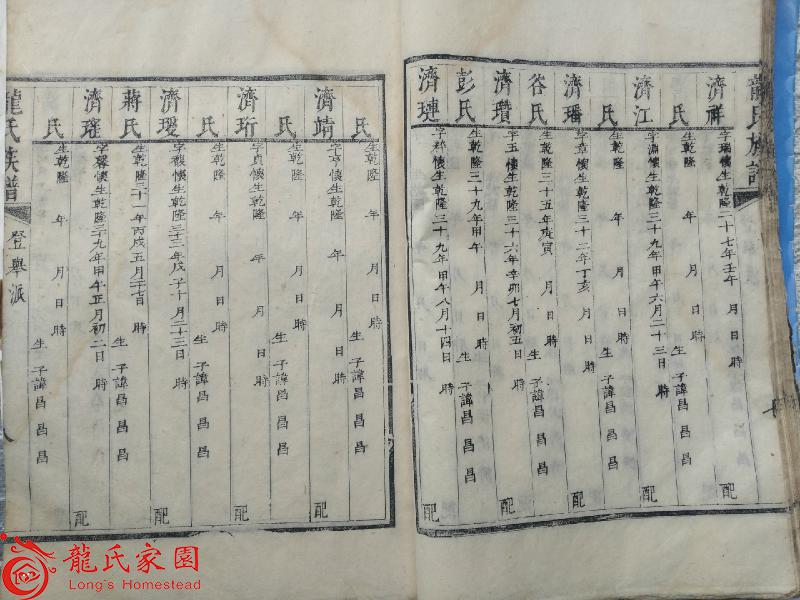 龍氏族譜
濟祥 字瑞懷生乾隆二十七年壬午 年 月 日 時 配
氏 生乾隆 年 月 日 時 生 子諱昌 昌 昌
濟江 字淵懷生乾隆三十九年甲午六月二十三日 時 配
氏 生乾隆 年 月 日 時 生 子諱昌 昌 昌
濟璠 字章懷生乾隆三十二年丁亥 月 日 時 配
谷氏 生乾隆三十五年庚寅 月 日 時 生 子諱昌 昌 昌
濟瓚 字玉懷生乾隆三十六年辛卯七月初五日 時 配
彭氏 生乾隆三十九年甲午 月 日 時 生 子諱昌 昌 昌
濟璉 字懷生乾隆三十九年甲午八月十四日 時 配
氏 生乾隆 年 月 日 時 生 子諱昌 昌 昌
濟靖 字亨懷生乾隆 年 月 日 時 配
氏 生乾隆 年 月 日 時 生 子諱昌 昌 昌
濟珩 字貞懷生乾隆 年 月 日 時 配
氏 生乾隆 年 月 日 時 生 子諱昌 昌 昌
濟瑷 字懷生乾隆三十三年戊子十月二十三日 時 配
蔣氏 生乾隆三十一年丙戌五月日 時 生 子諱昌 昌 昌
濟瑤 字馨懷生乾隆三十九年甲午正月初二日 時 配
氏 生乾隆 年 月 日 時 生 子諱昌 昌 昌
龍氏族譜 登舉派 八
龍氏家園
Long's Homestead